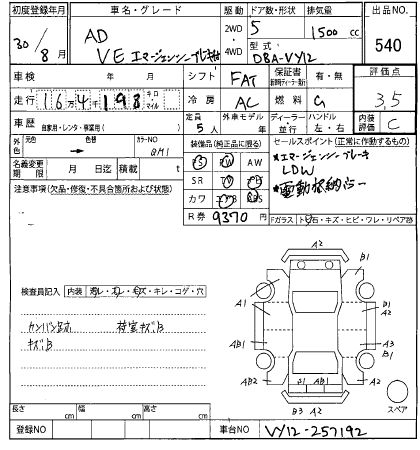 初度登録年月 車名・グレード 駆動 ドア数・形状 排気量 出品NO.
30/8月 AD 2WD 5 1500cc 540
VE エマージェンシーブレーキ付 4WD 型式 DBA-VY12
車検 年 月 シフト FAT 保証書 有・無 評価点
走行 16万4198 キロ マイル 冷房 AC 燃料 G 3.5
車歴 自家用・レンタ・事業用( ) 定員 5人 外車モデル 年 ディーラー 並行 ハンドル 左・右 内装評価 C
外色 元色 色替 カラーNO QM1 装備品(純正品に限る) セールスポイント(正常に作動するもの)
PS PW AW *エマージェンシーブレーキ
名義変更期限 月 日迄 積載 t SR TV ナビ LDW
注意事項(欠品・修復・不具合箇所および状態) カワ エアB ABS *電動格納ミラー
R券 9370 Fガラス トビ石・キズ・ヒビ・ワレ・リペア跡
A2
B1
検査員記入 内装 汚レ・スレ・キズ・キレ・コゲ・穴 A1 A2
荷室キズB
キズB AB1 A3
AB1 B1
A2
B3 A2 スペア
長さ cm 幅 cm 高さ cm
登録NO 車台NO VY12-257192